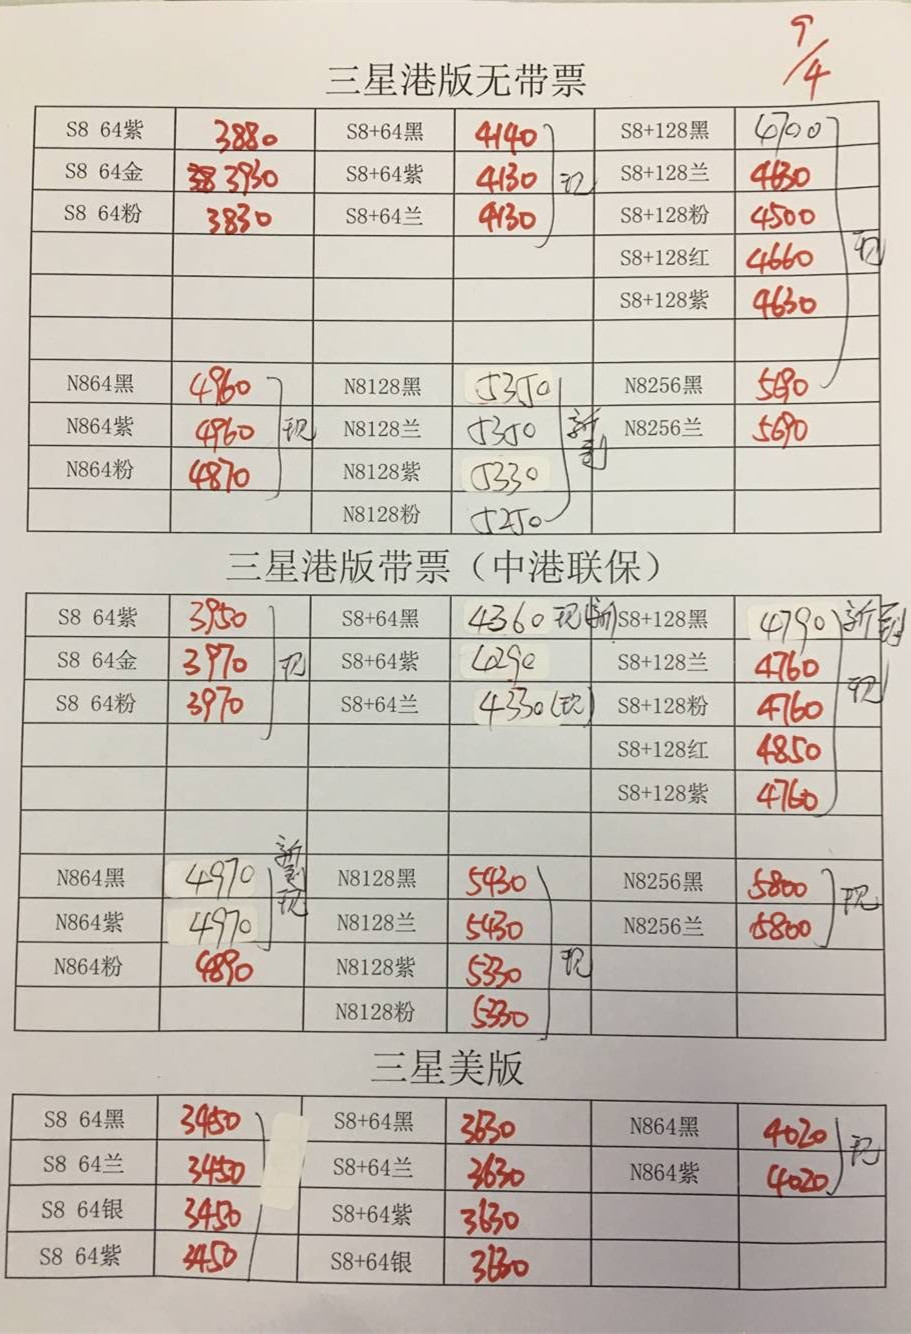 9/4
三星港版无带票
S8 64紫 3880 S8+64黑 4140 S8+128黑 4700
S8 64金 3930 S8+64紫 4130 现 S8+128兰 4630
S8 64粉 3830 S8+64兰 4130 S8+128粉 4500
S8+128红 4660 现
S8+128紫 4630
N864黑 4960 N8128黑 5350 N8256黑 5690
N864紫 4960 现 N8128兰 5350 新到 N8256兰 5690
N864粉 4870 N8128紫 5330
N8128粉 5250
三星港版带票（中港联保）
S8 64紫 3950 S8+64黑 4360 现 S8+128黑 4790 新到
S8 64金 3970 现 S8+64紫 4290 S8+128兰 4760 现
S8 64粉 3970 S8+64兰 4330(现) S8+128粉 4760
S8+128红 4850
S8+128紫 4760
N864黑 4970 新到 N8128黑 5430 N8256黑 5800 现
N864紫 4970 现 N8128兰 5430 N8256兰 5800
N864粉 4890 N8128紫 5330 现
N8128粉 5330
三星美版
S8 64黑 3450 S8+64黑 3630 N864黑 4020 现
S8 64兰 3450 S8+64兰 3630 N864紫 4020
S8 64银 3450 S8+64紫 3630
S8 64紫 3450 S8+64银 3630